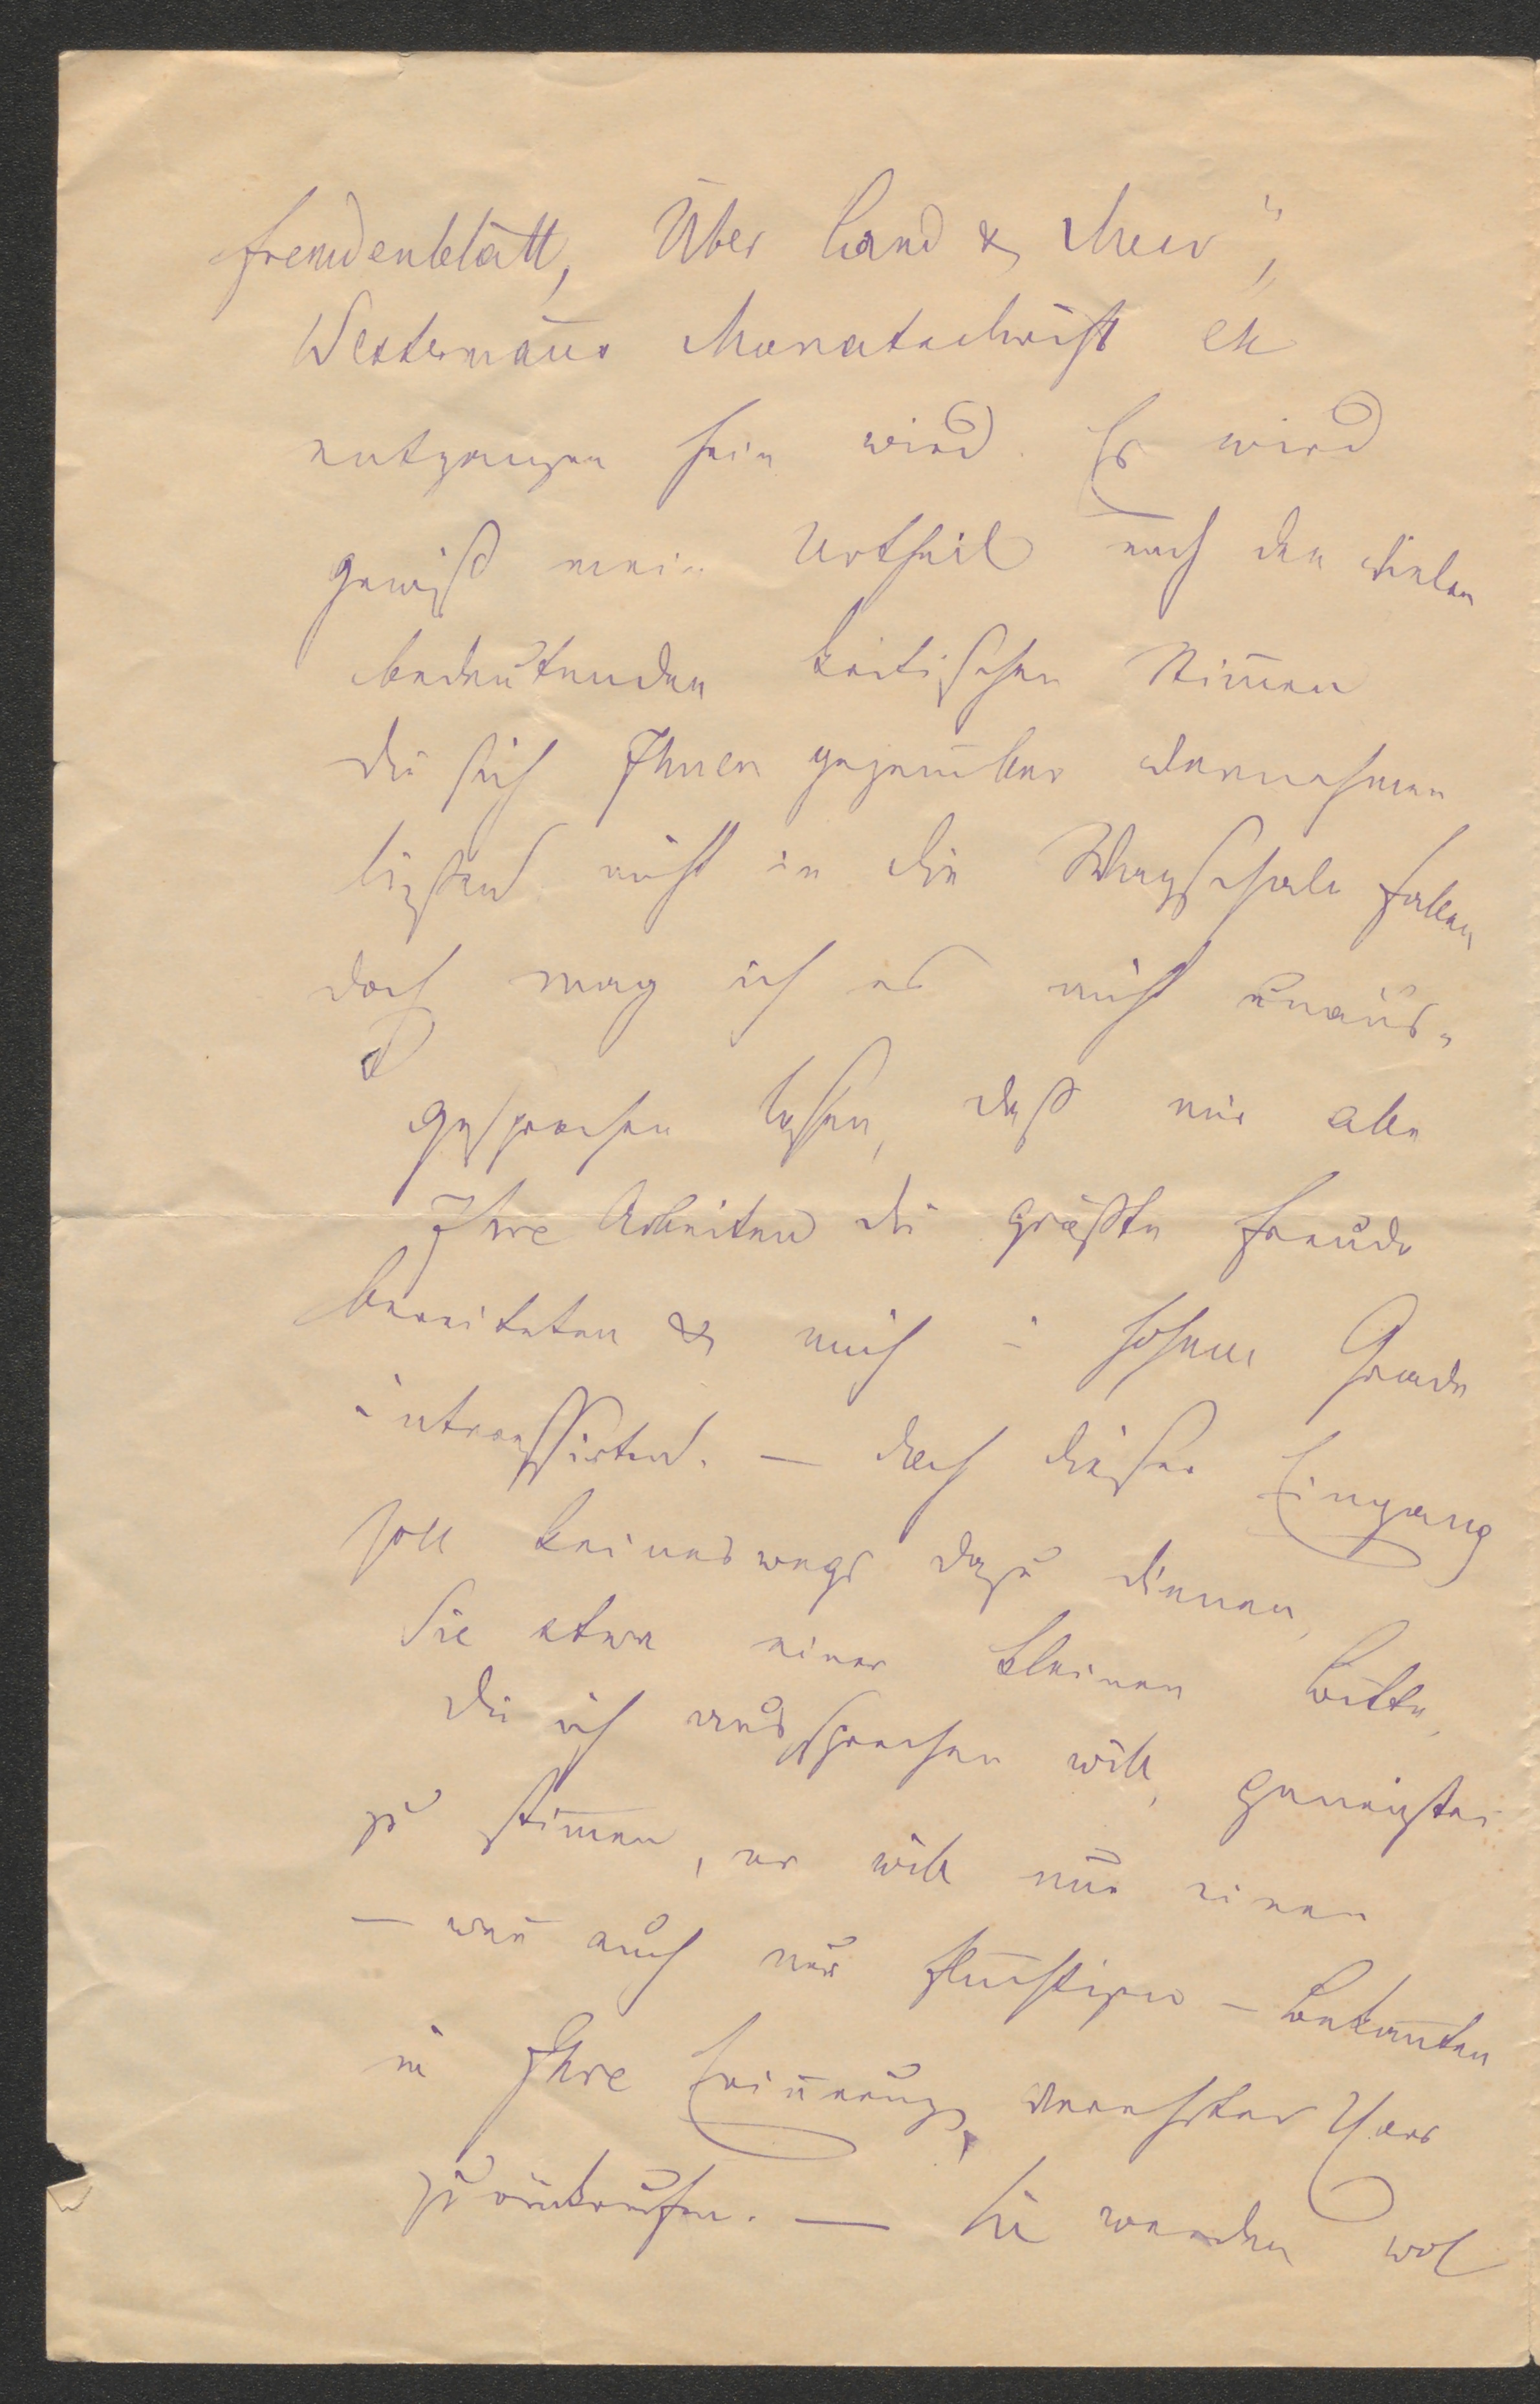 Fremdenblatt, Über Land & Meer",
Westermañs Monatschrift etc
entgangen sein wird. Es wird
gewiß mein Urtheil nach den vielen
bedeutenden kritischen Stim̄en
die sich Ihnen gegenüber vernehmen
ließen nicht in die Wagschale fallen
doch mag ich es nicht unaus-
gesprochen lassen, daß mir alle
Ihre Arbeiten die größte Freude
bereiteten & mich i hohem Grade
interessirten. — Doch dieser Eingang
soll keineswegs dazu dienen,
Sie etwa einer kleinen Bitte,
die ich aussprechen will, geneigter
zu stim̄en, er will nur einen
— wen̄ auch nur flüchtigen — Bekan̄ten
in Ihre Erin̄erung, verehrter Herr
zurückrufen. — Sie werden wol